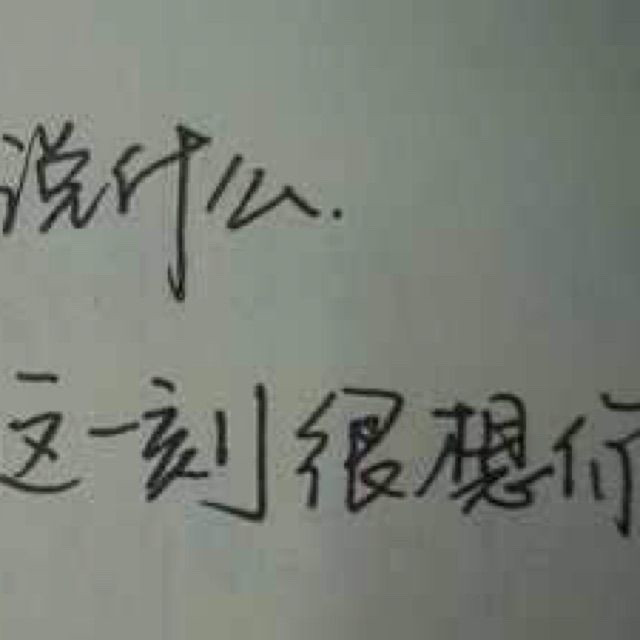 说什么.
这一刻很想你